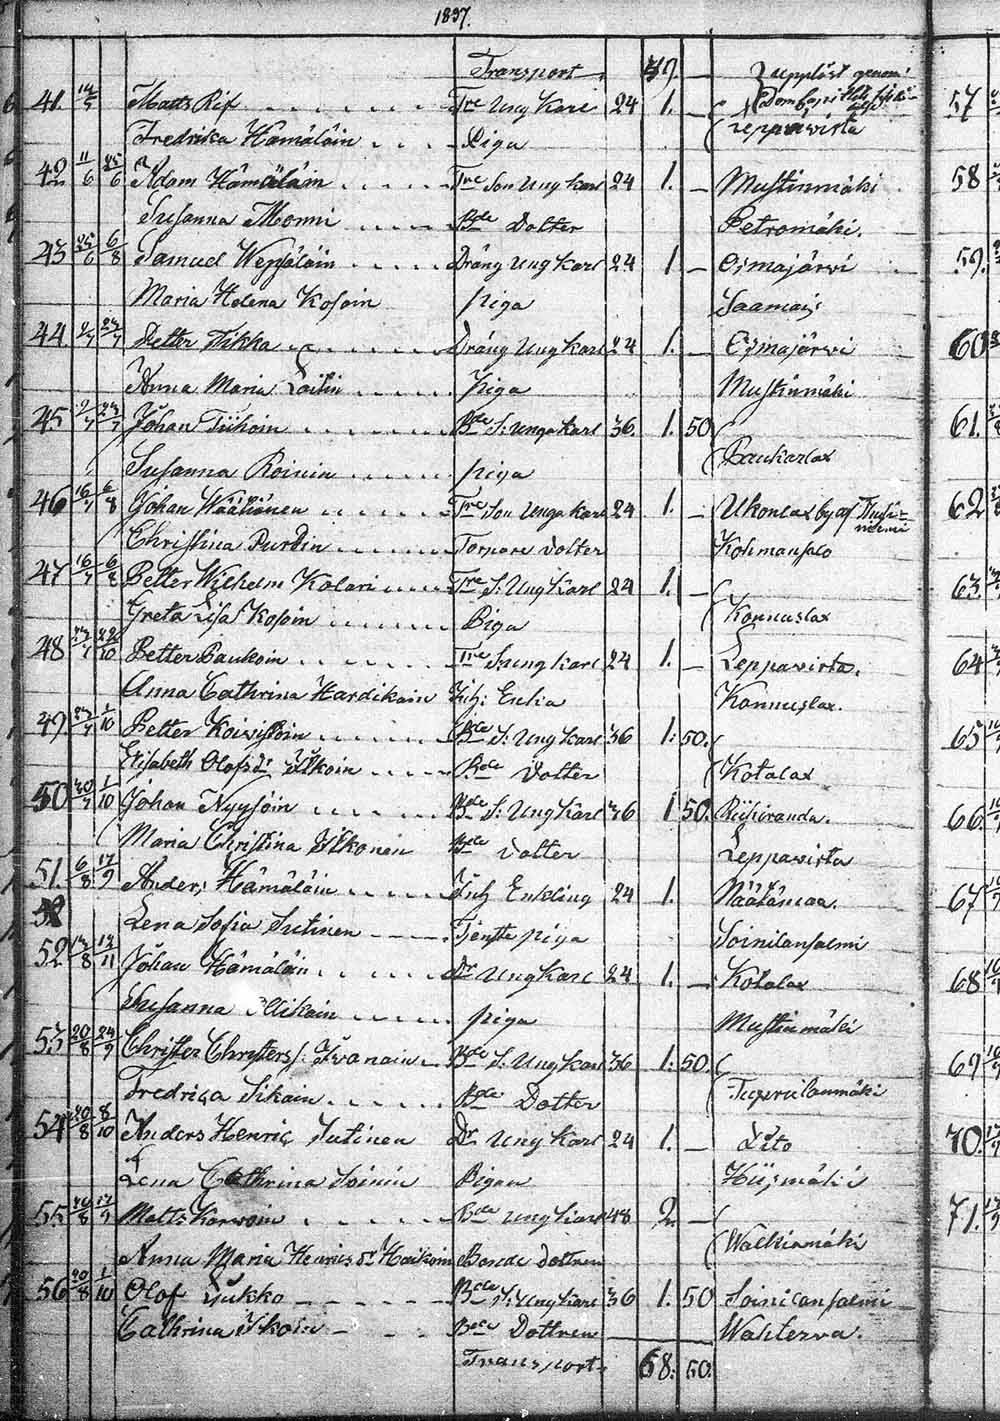 1837.
Transport 49. —
upplöst genom
Domkapit
41. 14/5 Matts Rif Tre Ung Karl 24 1. —
Fredrika Hämäläin Piga Leppawirta
42 11/6 25/6 Adam Hämäläin Tre Son Ung karl 24 1. — Mustinmäki
Susanna Monni Bde Dotter Petromäki.
43 25/6 6/8 Samuel Wepsäläin Dräng Ung Karl 24 1 — Osmajärvi
Maria Helena Kosoin piga Saamais
44 9/7 23/7 Petter Tikka Dräng Ung Karl 24 1. — Osmajärwi
Anna Maria Loitin Piga Mustinmäki
45 9/7 23/7 Johan Tiihoin Bde S: Unga karl 36. 1. 50
Susanna Roinin piga Paukarlax
46 16/7 6/8 Johan Wäätäinen Tre Son Unga karl 24 1. — Ukonlax by af
Christina Purdin Torpare Dotter Kohmansalo
47 16/7 6/8 Petter Wilhelm Kolari Tre S: Ung Karl 24 1. —
Greta Lisa Kosoin Piga Konnuslax
48 23/7 22/10 Petter Paukoin Tre S ung karl 24 1. — Leppawirta.
Anna Cathrina Hardikain Inh: Enkia Konnuslax.
49. 23/7 1/10 Petter Koivistoin Bde S: Ung Karl 36 1: 50.
Elisabeth Olofsdr Itkoin Bde Dotter Kotalax
50 30/7 1/10 Johan Nyysöin Bde S: Ung Karl 36 1 50. Riihiranda.
Maria Christina Itkonen Bde Dotter Leppawirta
51. 6/8 17/9 Anders Hämäläin Inh Enkling 24 1. Näätänmaa.
Lena Sofia Sutinen Tjenste piga Soinilansalmi
52 13/8 12/11 Johan Hämäläin Dr Ung Karl 24 1. — Kotalax
Susanna Miikain piga Mustinmäki
53 20/8 24/9 Christer Christers s. Iivanain Bde S: Ung Karl 36 1: 50.
Fredrica Sikain Bde Dotter Tuppurilanmäki
54 20/8 8/10 Anders Henric Sutinen Dr Ung Karl 24 1. — Dito
Lena Cathrina Soinin Pigan Hiismäki
55 20/8 17/9 Matts Karwoin Bde Ung Karl 48 2 —
Anna Maria Henricsdr Hoikoin Bonde Dottren Walkiamäki
56 20/8 1/10 Olof Lukko Bde S: Ung Karl 36 1. 50 Soinilansalmi
Cathrina Ikoin Bde Dottren Wahterva.
Transport 68: 50.
57
58
59.
60
61.
62
63
64
65
66
67
68
69
70.
71.